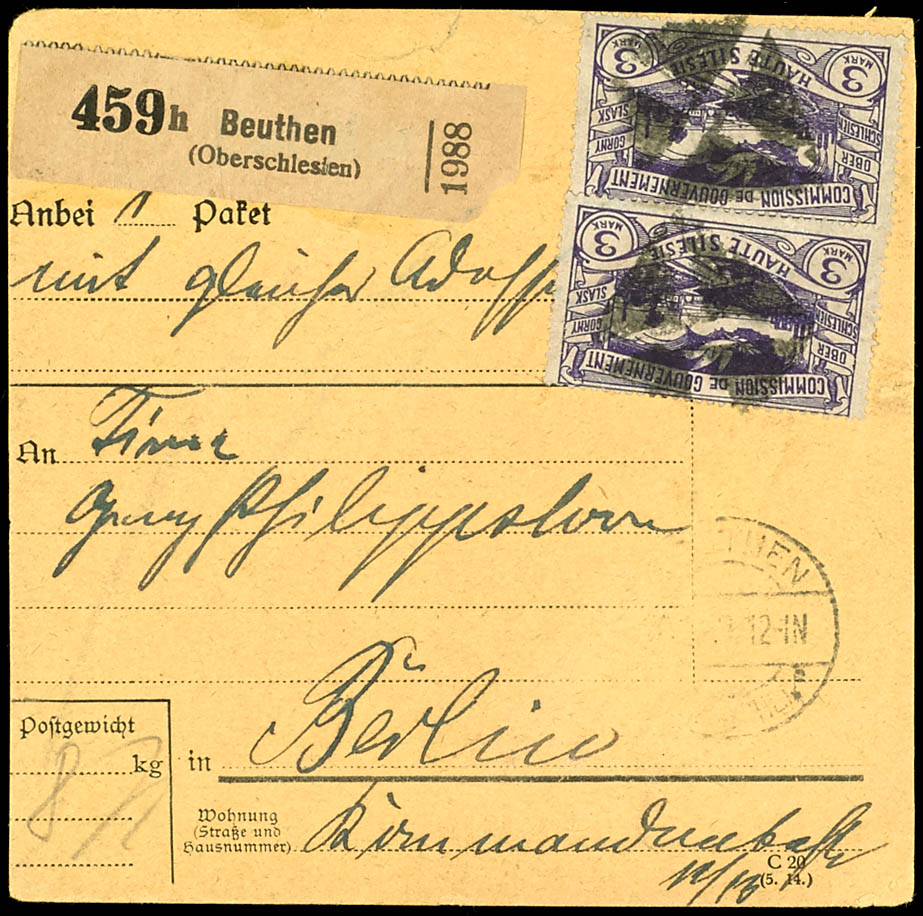 459h Beuthen
(Oberschlesien)
1988
Anbei 1 Paket
mit gleicher Adresse
3 MARK HAUTE SILESIE 3 MARK
GORNY SLASK
OBER SCHLESIEN
COMMISSION DE GOUVERNEMENT
3 MARK HAUTE SILESIE 3 MARK
GORNY SLASK
OBER SCHLESIEN
COMMISSION DE GOUVERNEMENT
An Firma
Philippsborn
THEN
12-1N
Postgewicht
8 kg
in Berlin
Wohnung
(Straße und
Hausnummer)
Kommandantenstr
C 20
(5. 14.)